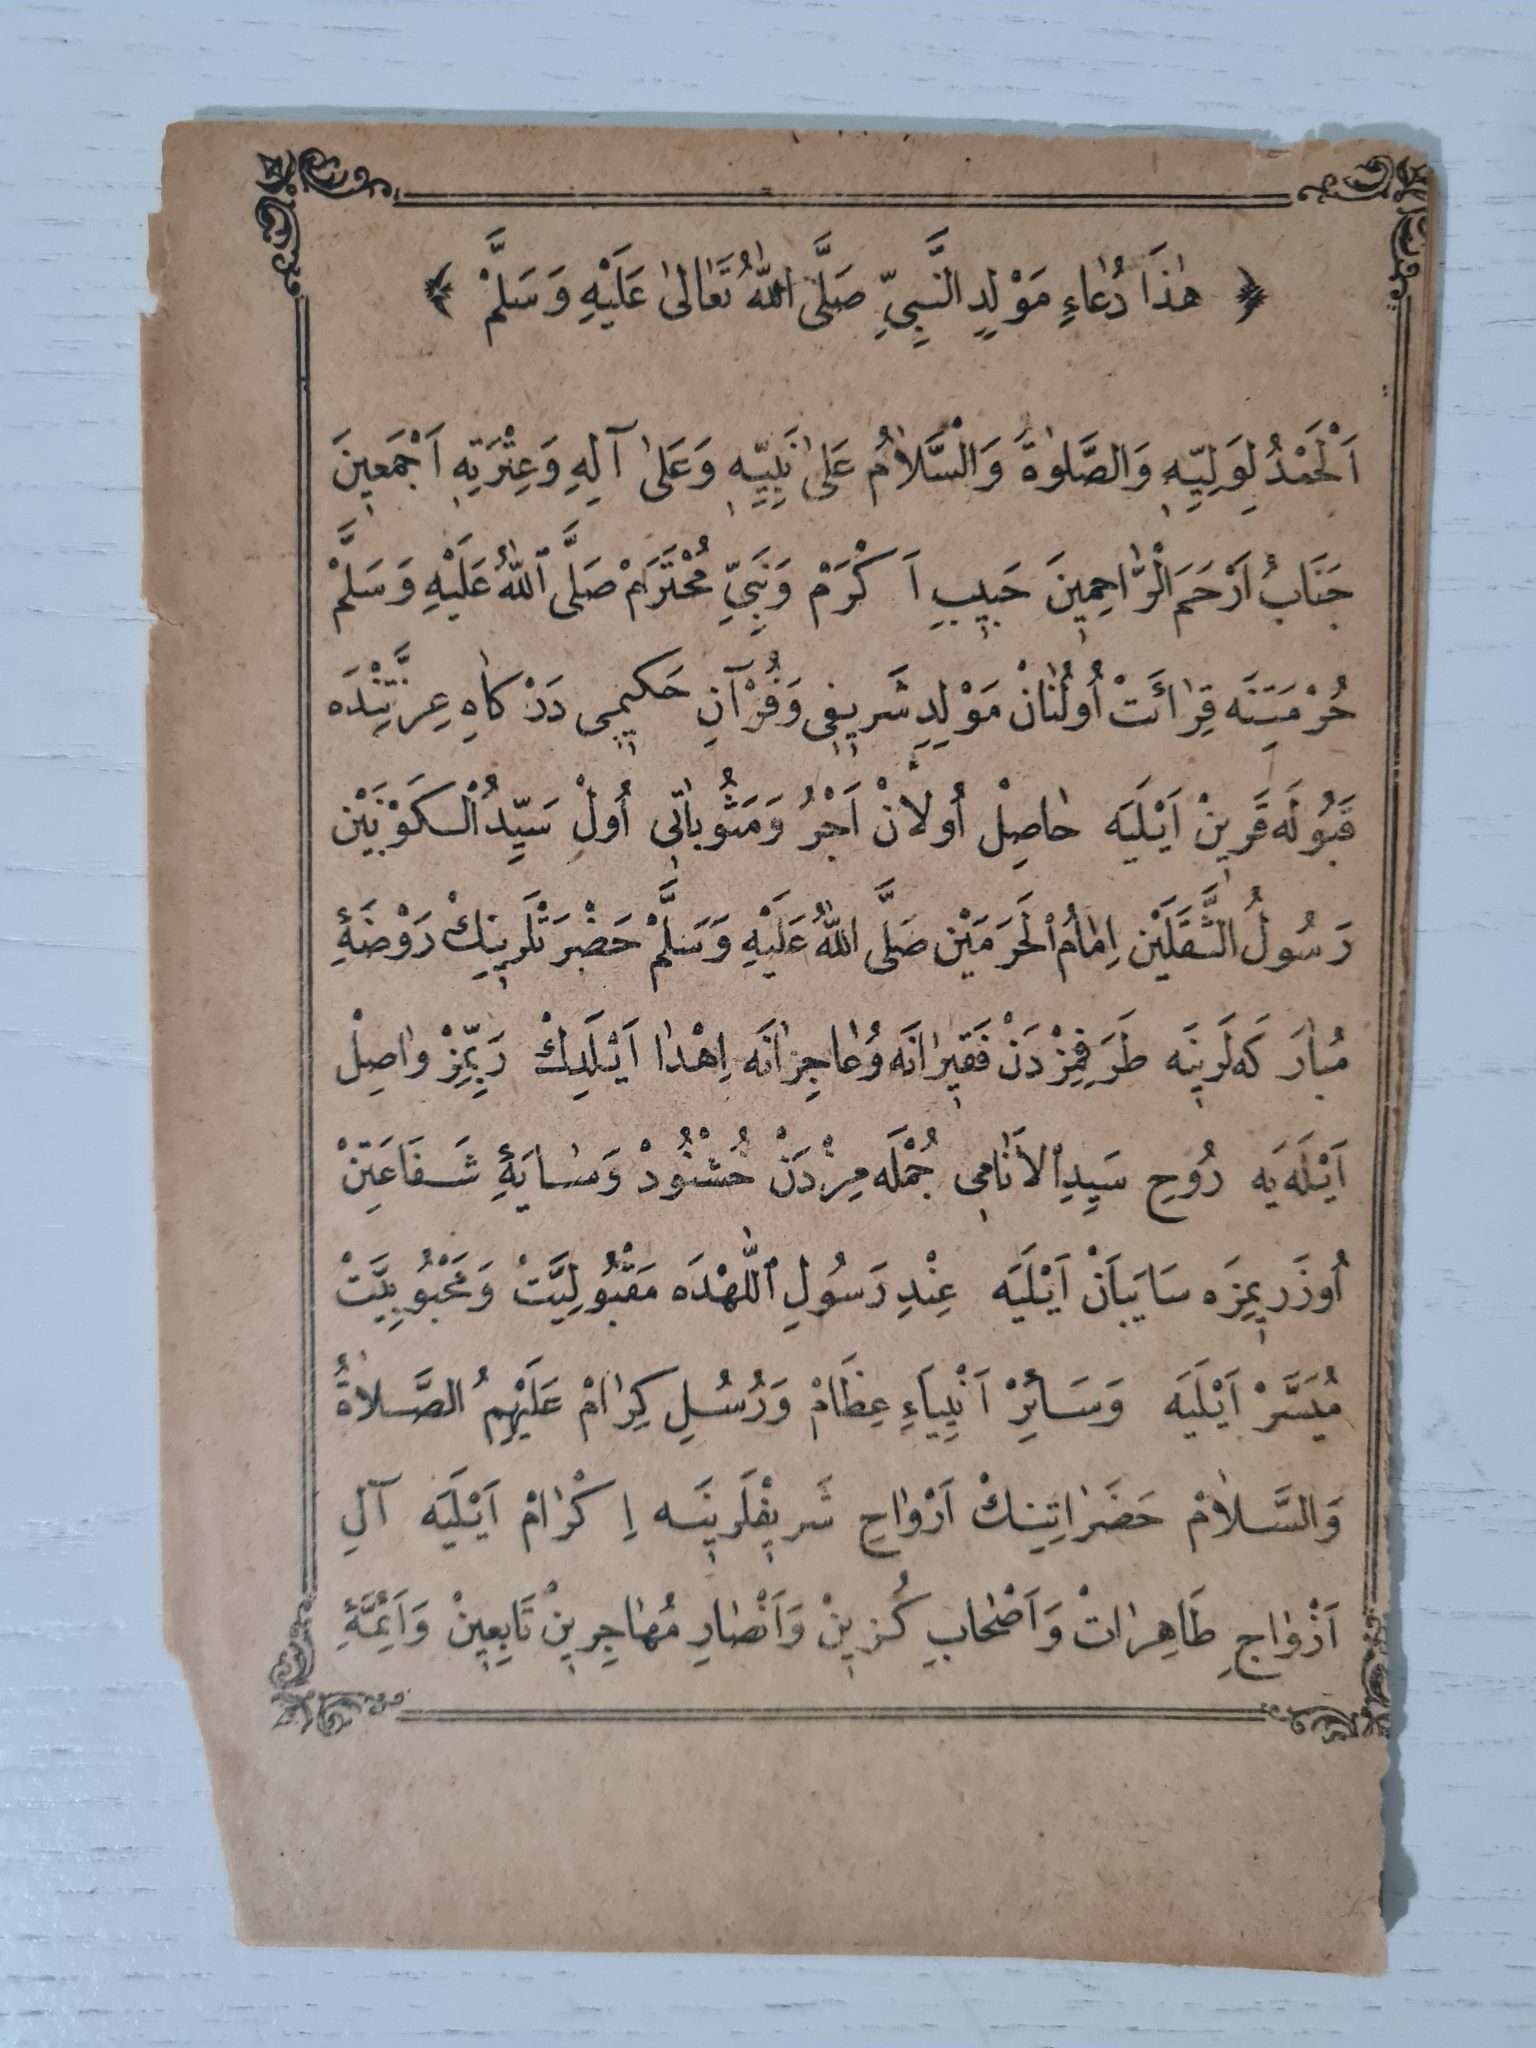 هٰذَا دُعَاءِ مَوْلِدِ النَّبِيِّ صَلَّى اللّٰهُ تَعَالٰى عَلَيْهِ وَسَلَّمْ
اَلْحَمْدُ لِوَلِيِّهٖ وَالصَّلٰوةُ وَالسَّلَامُ عَلٰى نَبِيِّهٖ وَعَلٰى آلِهِ وَعِتْرَتِهٖ اَجْمَعِينَ
جَنَابُ اَرْحَمَ الرَّاحِمِينَ حَبِيبِ اَكْرَمْ وَنَبِيِّ مُحْتَرَمْ صَلَّى اللّٰهُ عَلَيْهِ وَسَلَّمْ
حُرْمَتِنَه قِرَائَتْ اُولُنَانْ مَوْلِدِ شَرِيفِى وَقُرْآنِ حَكِيمِى دَرْكَاهِ عِزَّتِنْدَه
قَبُولَه قَرِينْ اَيْلَيَه حَاصِلْ اُولَانْ اَجْرُ وَمَثُوبَاتِى اُولْ سَيِّدُ الْكَوْنَيْن
رَسُولُ الثَّقَلَيْن اِمَامُ الْحَرَمَيْن صَلَّى اللّٰهُ عَلَيْهِ وَسَلَّمْ حَضْرَتْلَرِينِكْ رَوْضَهٔ
مُبَارَكَه لَرِينَه طَرَفِمِزْدَنْ فَقِيرَانَه وُعَاجِزَانَه اِهْدَا اَيْلَدِكْ رَبِّمِزْ وَاصِلْ
اَيْلَه يَه رُوحِ سَيِّدِ الْاَنَامِى جُمْلَه مِزْدَنْ خُشْنُودْ وَسَايَهٔ شَفَاعَتِنْ
اُوزَرِيمِزَه سَايَبَانْ اَيْلَيَه عِنْدِ رَسُولِ اللّٰهْدَه مَقْبُولِيَّتْ وَمَحْبُوبِيَّتْ
مُيَسَّرْ اَيْلَيَه وَسَائِرْ اَنْبِيَاءِ عِظَامْ وَرُسُلِ كِرَامْ عَلَيْهِمُ الصَّلَاةُ
وَالسَّلَامْ حَضَرَاتِينِكْ اَرْوَاحِ شَرِيفْلَرِينَه اِكْرَامْ اَيْلَيَه آلِ
اَزْوَاجِ طَاهِرَاتْ وَاَصْحَابِ كُزِينْ وَاَنْصَارِ مُهَاجِرِينْ تَابِعِينْ وَاَئِمَّهٔ